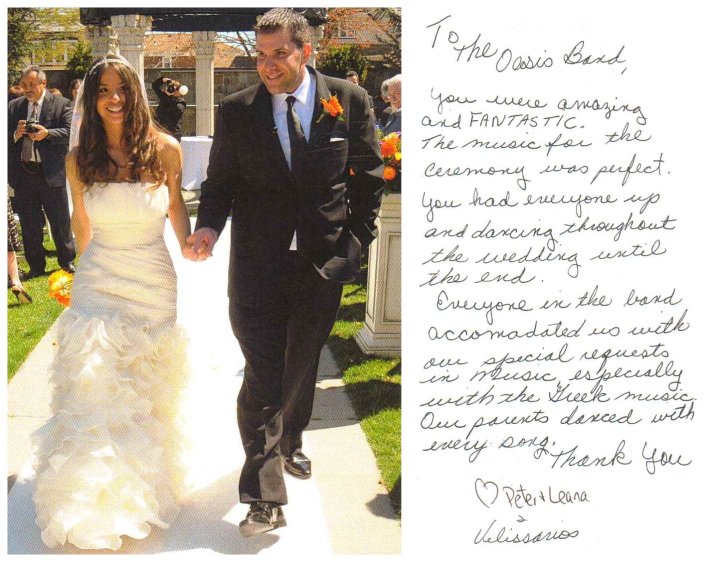 To The Oasis Band,
You were amazing
and FANTASTIC.
The music for the
ceremony was perfect.
You had everyone up
and dancing throughout
the wedding until
the end.
Everyone in the band
accomadated us with
our special requests
in music, especially
with the Greek music.
Our parents danced with
every song.
Thank You
♡ Peter + Leana
Velissarios